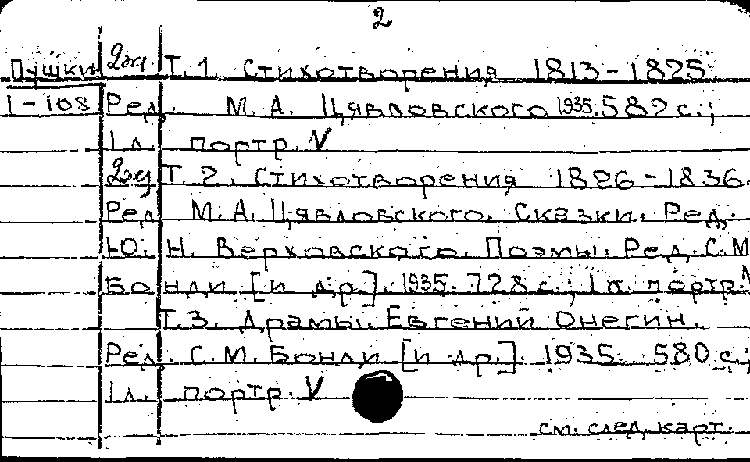 2
Пушкин 2эк. Т. 1. Стихотворения 1813-1825.
1-108 Ред. М. А. Цявловского 1935. 582 с.;
1 л. портр. V
2эк Т. 2. Стихотворения 1826-1836.
Ред. М. А. Цявловского. Сказки. Ред.
Ю. Н. Верховского. Поэмы. Ред. С. М.
Бонди [и др.]. 1935. 728 с.; 1 л. портр. V
Т. 3. Драмы. Евгений Онегин.
Ред. С. М. Бонди [и др.]. 1935. 580 с.;
1 л. портр. V
см. след. карт.